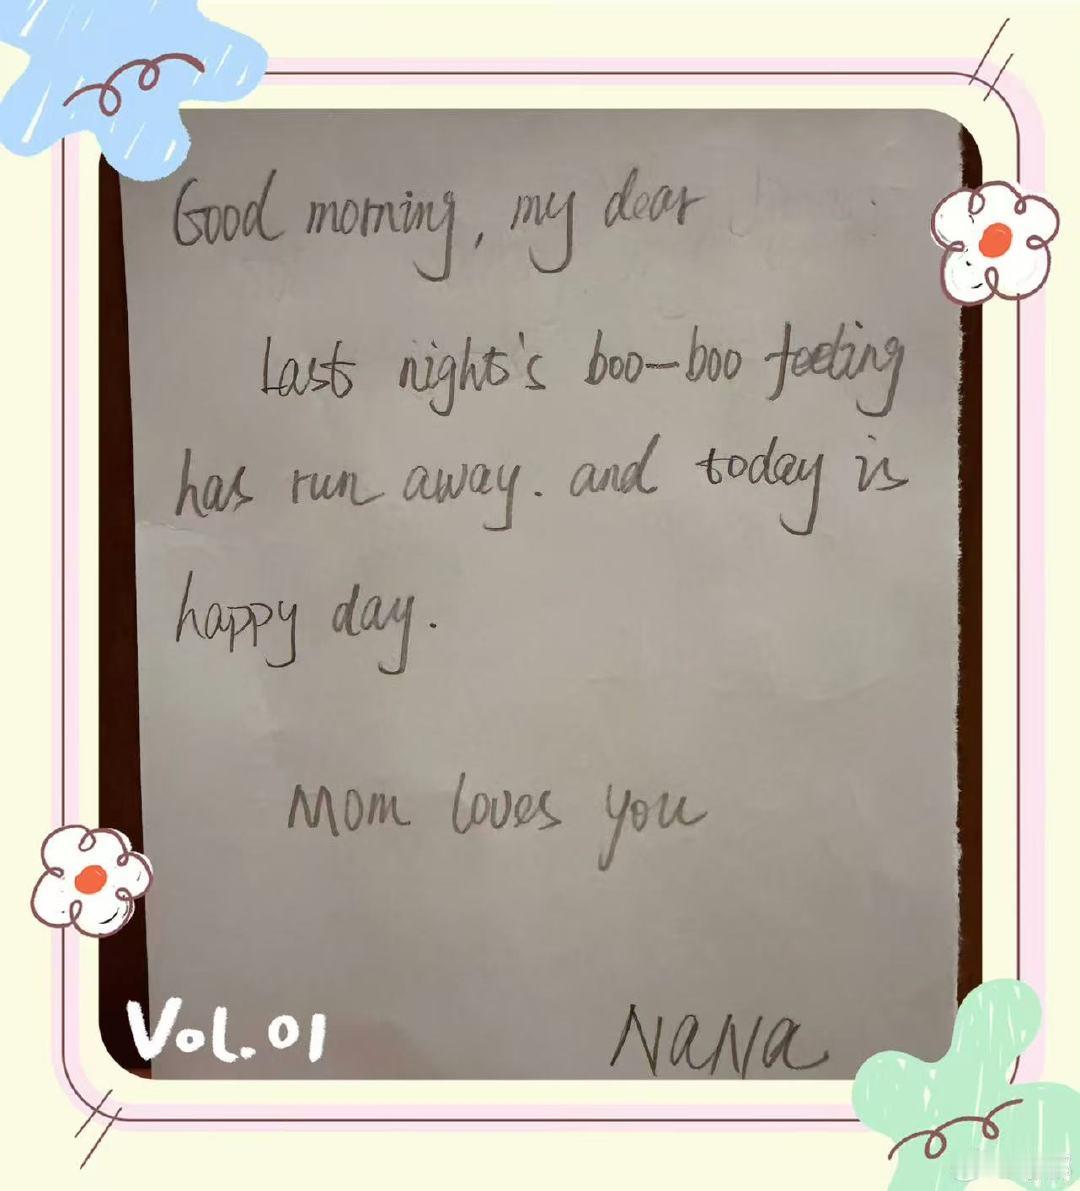 Good morning, my dear
Last night's boo-boo feeling
has run away. and today is
happy day.
Mom loves you
NaNa
Vol.01